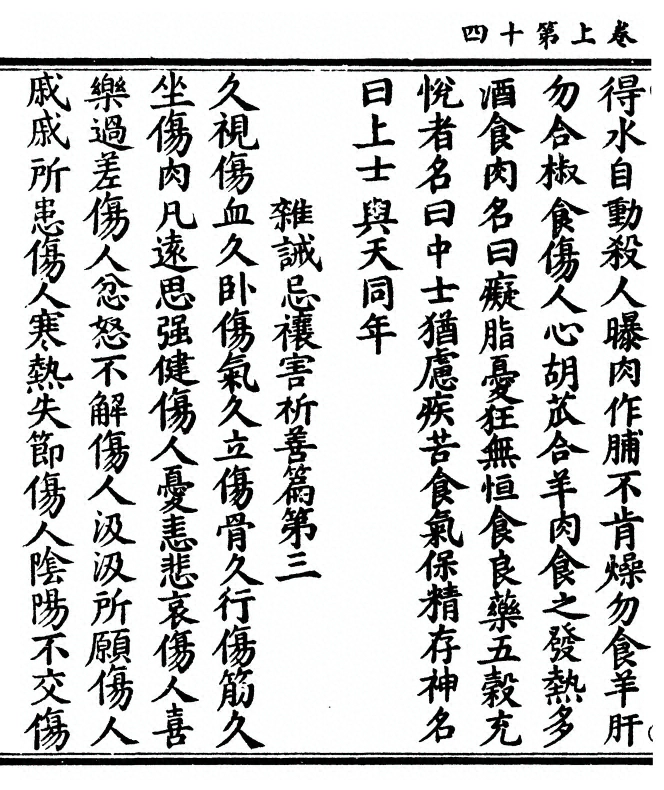 卷上第十四
得水自動殺人曝肉作脯不肯燥勿食羊肝
勿合椒食傷人心胡苽合羊肉食之發熱多
酒食肉名曰癡脂憂狂無恒食良藥五穀充
悅者名曰中士猶慮疾苦食氣保精存神名
曰上士與天同年
雜誡忌禳害祈善篇第三
久視傷血久卧傷氣久立傷骨久行傷筋久
坐傷肉凡遠思强健傷人憂恚悲哀傷人喜
樂過差傷人忿怒不解傷人汲汲所願傷人
戚戚所患傷人寒熱失節傷人陰陽不交傷